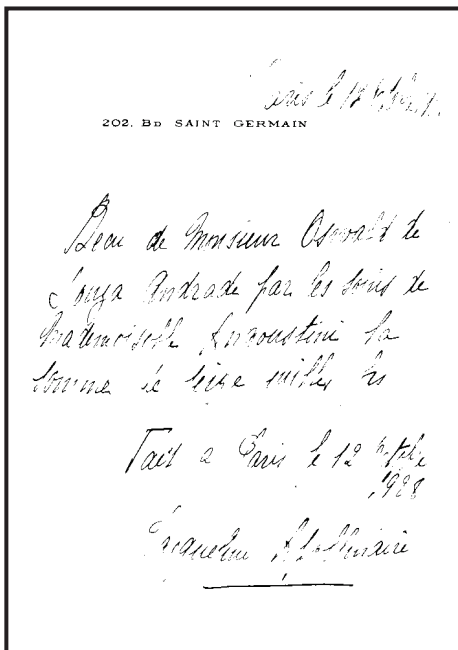 Paris le 12
202, BD SAINT GERMAIN
Recu de Monsieur Oswald de
Souza Andrade par les soins de
Mademoiselle la
somme de seize mille frs
Fait a Paris le 12 octobre
1928
Jacqueline Apollinaire